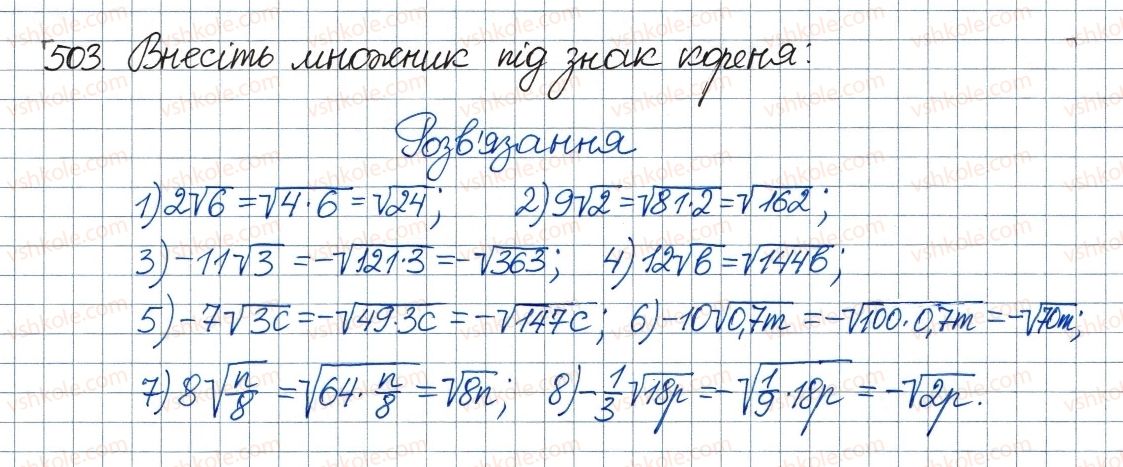 503. Внесіть множник під знак кореня:
Розв'язання
1) 2√6 = √4·6 = √24; 2) 9√2 = √81·2 = √162;
3) -11√3 = -√121·3 = -√363; 4) 12√b = √144b;
5) -7√3c = -√49·3c = -√147c; 6) -10√0,7m = -√100·0,7m = -√70m;
7) 8√n/8 = √64·n/8 = √8n; 8) -1/3√18p = -√1/9·18p = -√2p.